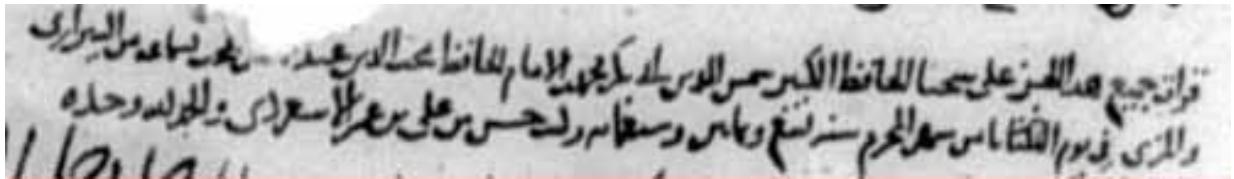 قرات جميع هذا الجزء على شيخنا الحافظ الكبير شمس الدين ابي بكر محمد بن الامام الحافظ محب الدين عبد بن محمد بسماعه من الشيرازي
والمزي في يوم الثلثا ثامن شهر المحرم سنة تسع وثمانين وسبعمائه وكتب حسن بن علي بن عمر الاسعردي والحمد لله وحده